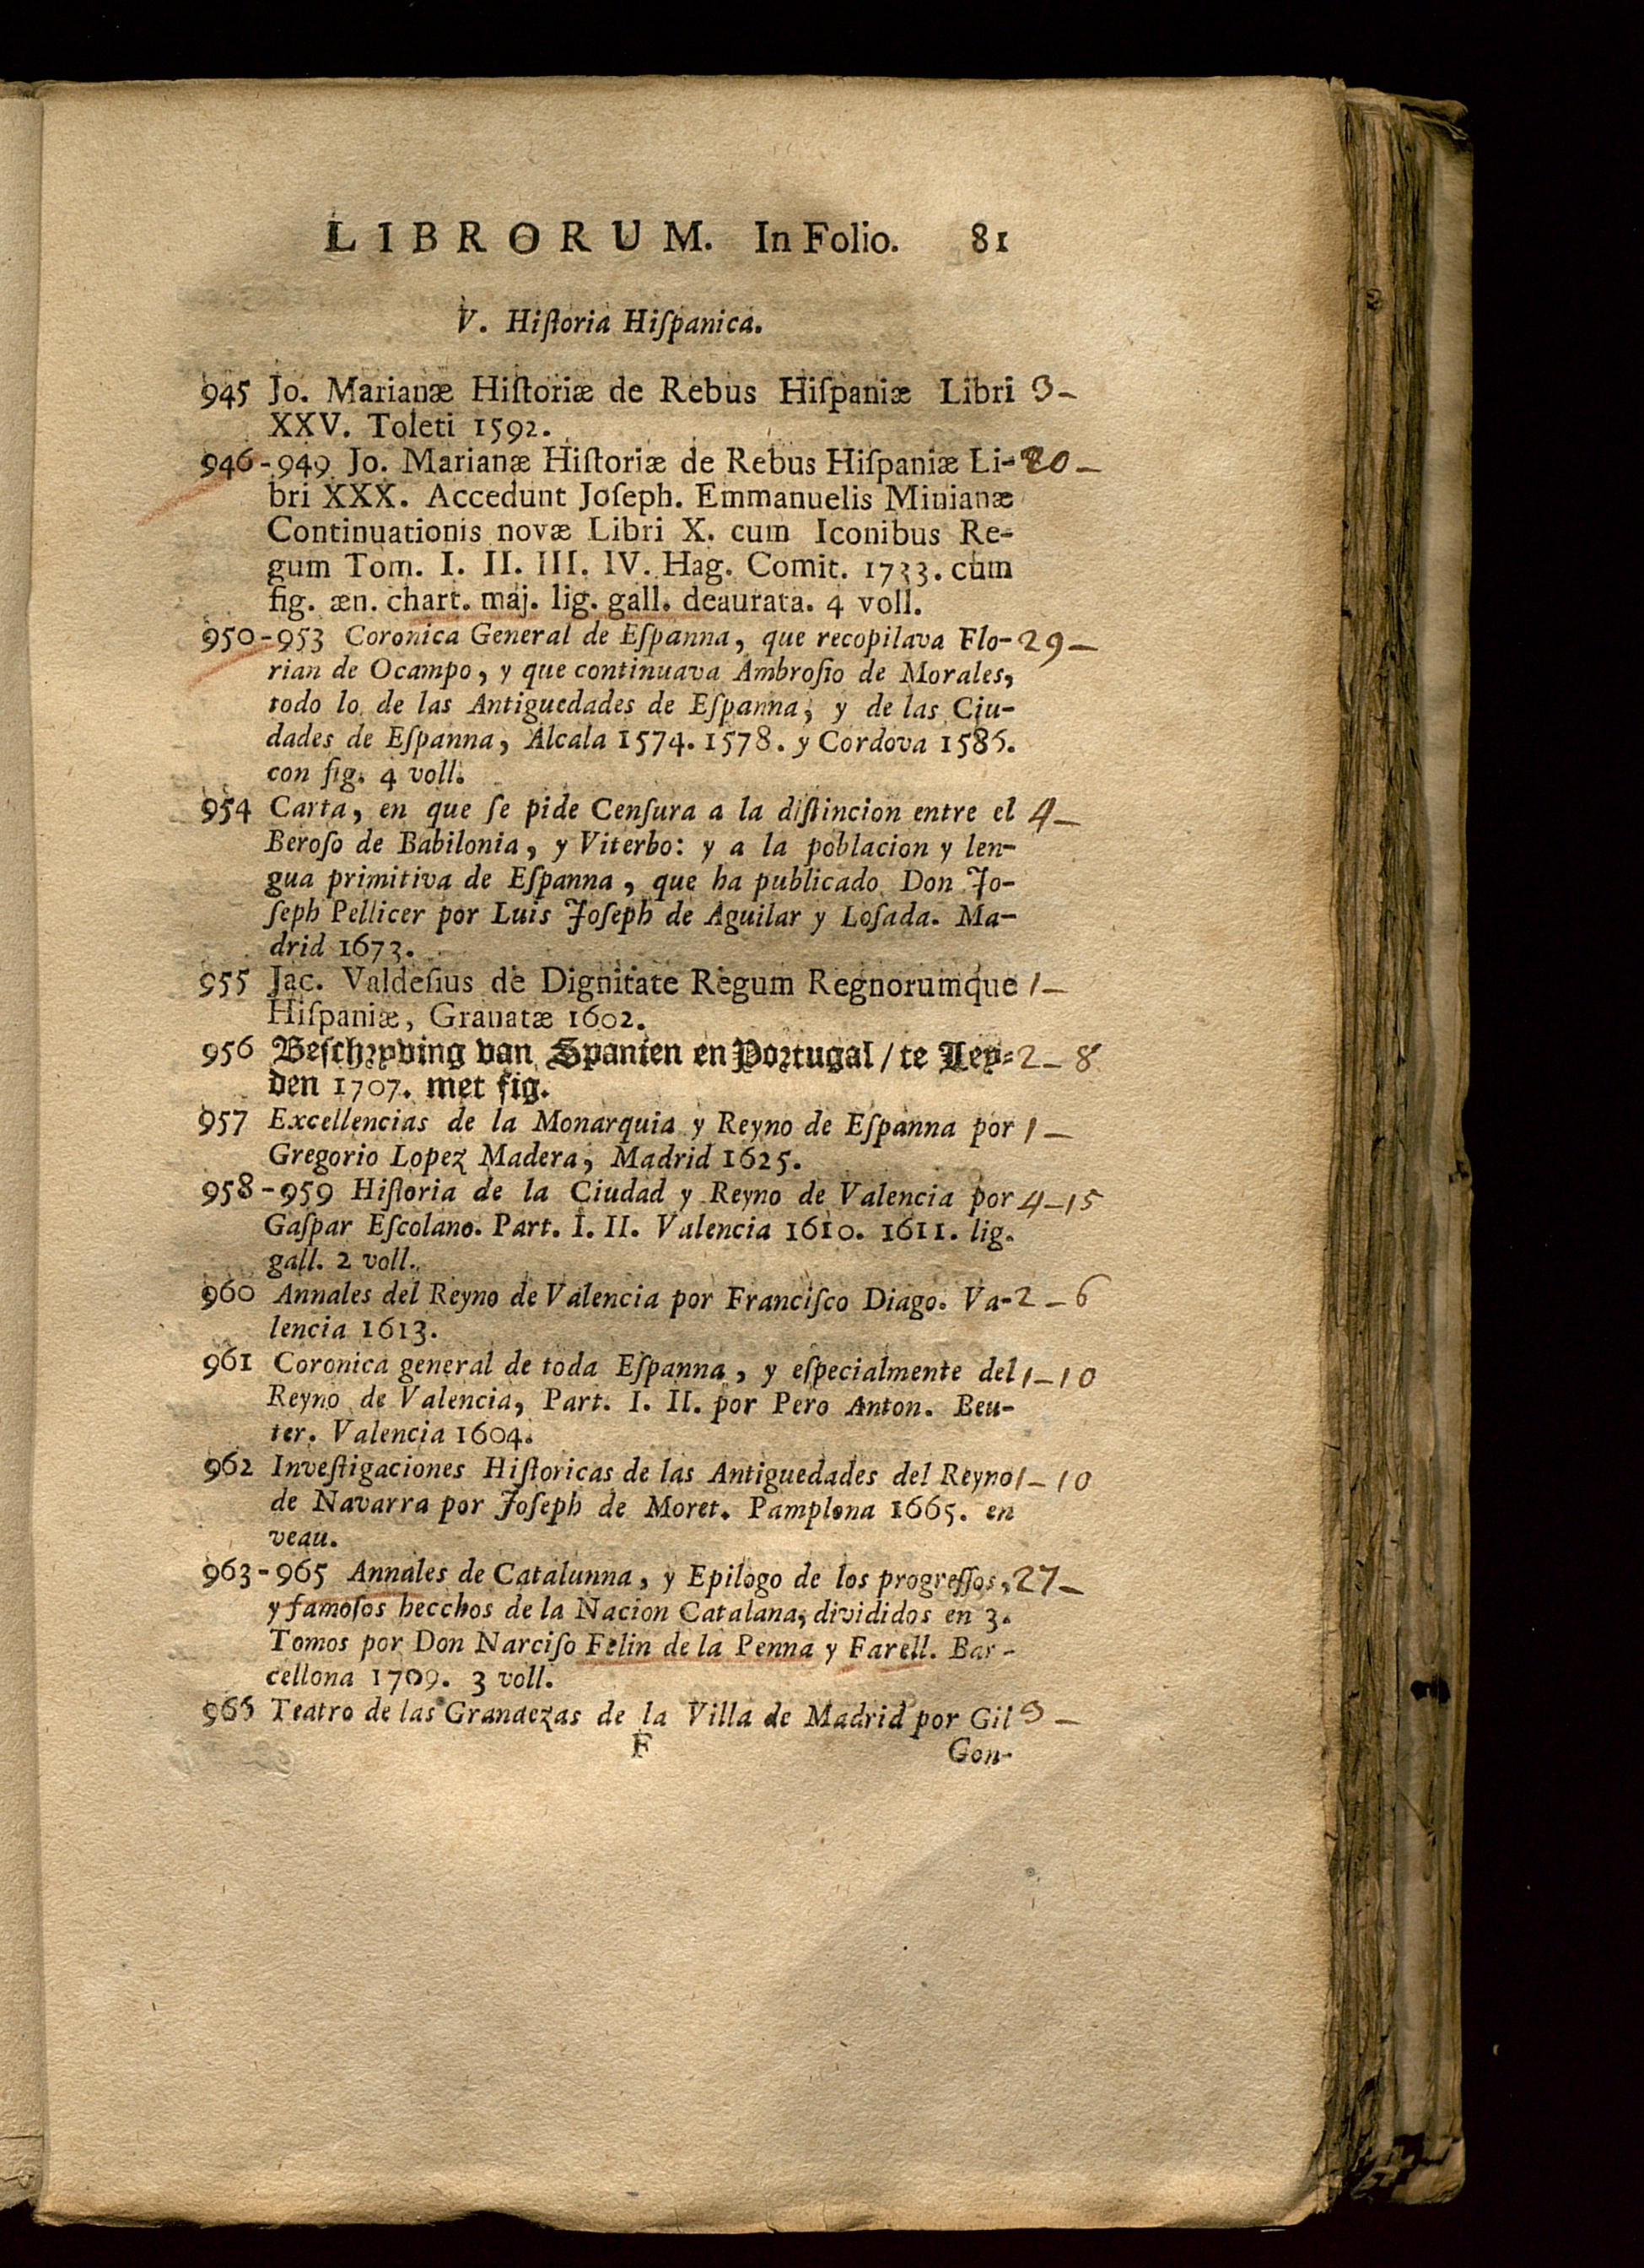 LIBRORUM. In Folio. 81
V. Hiſtoria Hiſpanica.
945 Jo. Marianæ Hiſtoriæ de Rebus Hiſpaniæ Libri 3-
XXV. Toleti 1592.
946-949 Jo. Marianæ Hiſtoriæ de Rebus Hiſpaniæ Li- 20-
bri XXX. Accedunt Joſeph. Emmanuelis Minianæ
Continuationis novæ Libri X. cum Iconibus Re-
gum Tom. I. II. III. IV. Hag. Comit. 1733. cum
fig. æn. chart. maj. lig. gall. deaurata. 4 voll.
950-953 Coronica General de Eſpanna, que recopilava Flo- 29-
rian de Ocampo, y que continuava Ambroſio de Morales,
todo lo de las Antiguedades de Eſpanna, y de las Ciu-
dades de Eſpanna, Alcala 1574. 1578. y Cordova 1586.
con fig. 4 voll.
954 Carta, en que ſe pide Cenſura a la diſtincion entre el 4-
Beroſo de Babilonia, y Viterbo: y a la poblacion y len-
gua primitiva de Eſpanna, que ha publicado Don Jo-
ſeph Pellicer por Luis Joſeph de Aguilar y Loſada. Ma-
drid 1673.
955 Jac. Valdeſius de Dignitate Regum Regnorumque 1-
Hiſpaniæ, Granatæ 1602.
956 Beſchryving van Spanien en Portugal / te Ley- 2-8
den 1707. met fig.
957 Excellencias de la Monarquia y Reyno de Eſpanna por 1-
Gregorio Lopez Madera, Madrid 1625.
958-959 Hiſtoria de la Ciudad y Reyno de Valencia por 4-15
Gaſpar Eſcolano. Part. I. II. Valencia 1610. 1611. lig.
gall. 2 voll.
960 Annales del Reyno de Valencia por Franciſco Diago. Va- 2-6
lencia 1613.
961 Coronica general de toda Eſpanna, y eſpecialmente del 1-10
Reyno de Valencia, Part. I. II. por Pero Anton. Beu-
ter. Valencia 1604.
962 Inveſtigaciones Hiſtoricas de las Antiguedades del Reyno 1-10
de Navarra por Joſeph de Moret. Pamplona 1665. en
veau.
963-965 Annales de Catalunna, y Epilogo de los progreſſos, 27-
y famoſos hecchos de la Nacion Catalana, divididos en 3.
Tomos por Don Narciſo Felin de la Penna y Farell. Bar-
cellona 1709. 3 voll.
966 Teatro de las Grandezas de la Villa de Madrid por Gil 3-
F Gon-